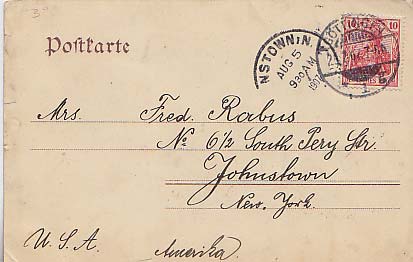 3-
Postkarte
10
NSTOWN N.
AUG 5
930 AM
1907
Mrs. Fred. Rabus
No 6 1/2 South Pery Str.
Johnstown
New. York.
U. S. A. Amerika.